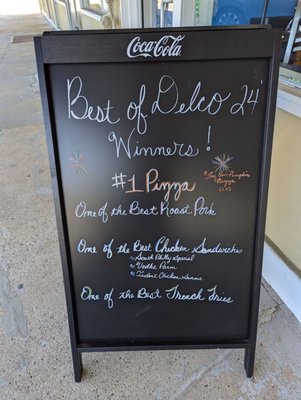 Coca-Cola
Best of Delco 24
Winners!
#1 Pizza
*Try Our Pumpkin
Pizza
One of the Best Roast Pork
One of the Best Chicken Sandwiches
South Philly Special
Vodka Parm
Chicken
One of the Best French Fries